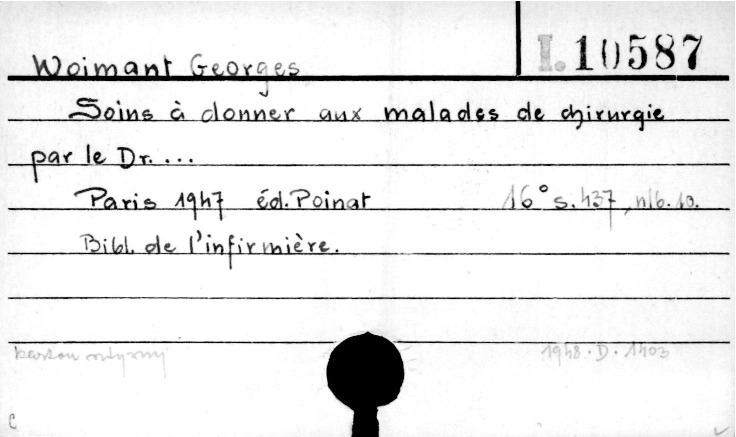 I. 10587
Woimant Georges
Soins à donner aux malades de chirurgie
par le Dr. ...
Paris 1947 éd. Poinat 16° s. 437, nlb. 10.
Bibl. de l'infirmière.
1948. D. 1403
C